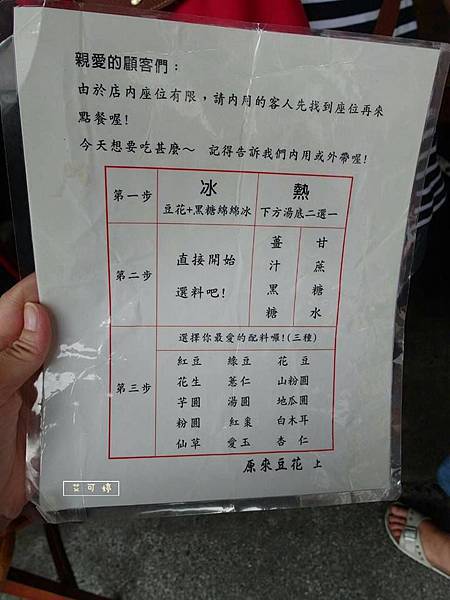 親愛的顧客們：
由於店內座位有限，請內用的客人先找到座位再來
點餐喔！
今天想要吃甚麼～ 記得告訴我們內用或外帶喔！
第一步
冰
豆花+黑糖綿綿冰
熱
下方湯底二選一
第二步
直接開始
選料吧！
薑汁黑糖
甘蔗糖水
第三步
選擇你最愛的配料囉！(三種)
紅豆 綠豆 花豆
花生 薏仁 山粉圓
芋圓 湯圓 地瓜圓
粉圓 紅棗 白木耳
仙草 愛玉 杏仁
原來豆花 上
艾可婷